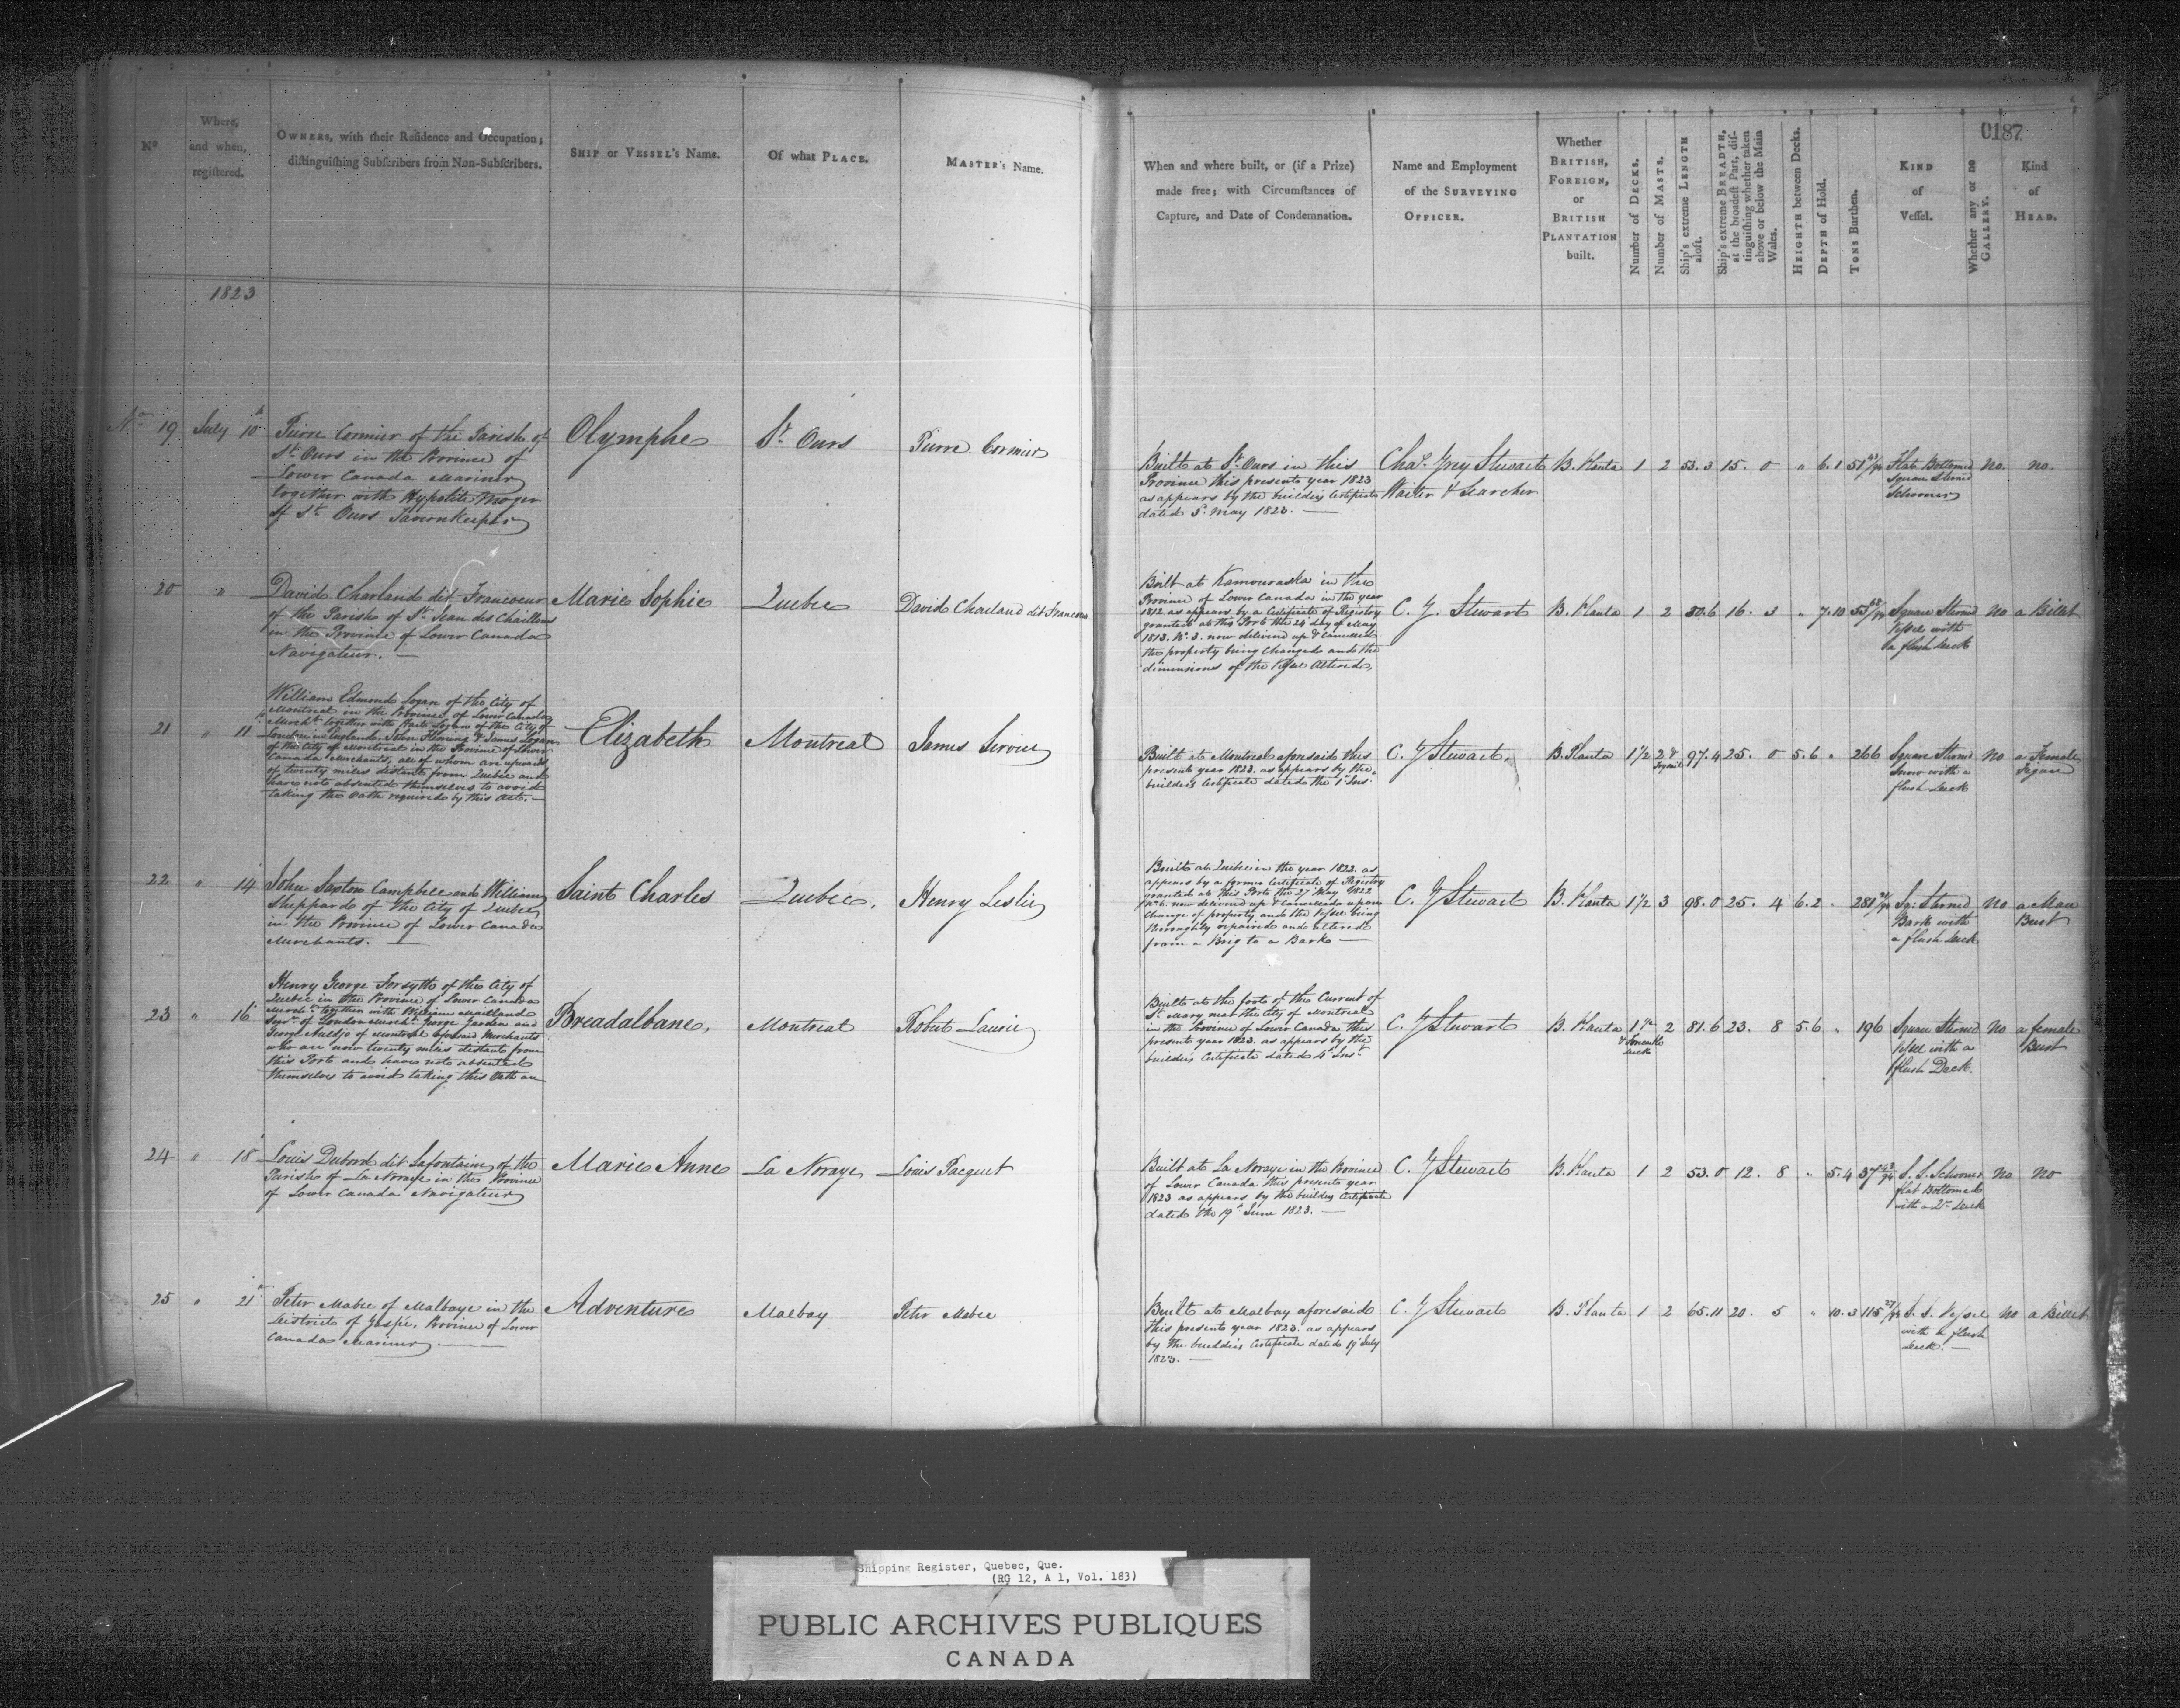 0187
Nº
Where,
and when,
registered.
OWNERS, with their Residence and Occupation;
distinguishing Subscribers from Non-Subscribers.
SHIP or VESSEL's Name.
Of what PLACE.
MASTER's Name.
When and where built, or (if a Prize)
made free; with Circumstances of
Capture, and Date of Condemnation.
Name and Employment
of the SURVEYING
OFFICER.
Whether
BRITISH,
FOREIGN,
or
BRITISH
PLANTATION
built.
Number of DECKS.
Number of MASTS.
Ship's extreme LENGTH
aloft.
Ship's extreme BREADTH,
at the broadest Part, dis-
tinguishing whether taken
above or below the Main
Wales.
HEIGHTH between Decks.
DEPTH of Hold.
TONS Burthen.
KIND
of
Vessel.
Whether any or no
GALLERY.
Kind
of
HEAD.
1823
No 19 July 10th
Pierre Cormier of the Parish of
St Ours in the Province of
Lower Canada Mariner
together with Hypolite Moger
of St Ours Tavernkeeper
Olymphe
St Ours
Pierre Cormier
Built at St Ours in this
Province this present year 1823
as appears by the building Certificate
dated 5 May 1823.
Chas Grey Stewart
Waiter & Searcher
B. Planta 1 2 53.3 15. 0 " 6.1 51
Flat Bottomed
Square Sterned
Schooner
no. no.
20 "
David Charland dit Francoeur
of the Parish of St Jean des Chaillons
in the Province of Lower Canada
Navigateur.
Marie Sophie
Quebec
David Charland dit Francoeur
Built at Kamouraska in the
Province of Lower Canada in the year
1812 as appears by a Certificate of Registry
granted at this Port the 24 day of May
1813. No. 3. now delivered up & Cancelled
the property being changed and the
dimensions of the Vessel altered,
C. G. Stewart
B. Planta 1 2 50.6 16. 3 " 7.10
Square Sterned
Vessel with
a flush deck
No a Billet
21 " 11
William Edmond Logan of the City of
Montreal in the Province of Lower Canada
Mercht together with Hart Logan of the City of
London in England. John Fleming & James Logan
of the City of Montreal in the Province of Lower
Canada Merchants, all of whom are upwards
of twenty miles distant from Quebec and
have not absented themselves to avoid
taking the Oath required by this Act.
Elizabeth
Montreal
James Servier
Built at Montreal aforesaid this
present year 1823. as appears by the
building Certificate dated the 1 Inst.
C. G Stewart.
B. Planta 1½ 2 & 97.4 25. 0 5.6 " 266
Square Sterned
Snow with a
flush deck
No a Female
Figure
22 " 14
John Saxton Campbell and William
Sheppard of the City of Quebec
in the Province of Lower Canada
Merchants.
Saint Charles
Quebec.
Henry Leslie
Built at Quebec in the year 1822. as
appears by a former Certificate of Registry
granted at this Port the 27 May 1822
No 6. now delivered up & Cancelled upon
Change of property, and the Vessel being
thoroughly repaired and altered
from a Brig to a Bark
C. G Stewart
B. Planta 1½ 3 98.0 25. 4 6.2 "
Sq: Sterned
Bark with
a flush deck
No a Man
Bust
23 " 16
Henry George Forsyth of the City of
Quebec in the Province of Lower Canada
Mercht together with William Maitland
Junr of London Mercht George Garden and
George Auldjo of Montreal aforesaid Merchants
who are now twenty miles distant from
this Port and have not absented
themselves to avoid taking this Oath
Breadalbane,
Montreal
Robert Laurie
Built at the foot of the Current of
St Mary near the City of Montreal
in the Province of Lower Canada this
present year 1823. as appears by the
building Certificate dated 4 Inst
C. G Stewart
B. Planta 1½ 2 81.6 23. 8 5.6 " 196
Square Sterned
Vessel with a
flush Deck.
No a female
Bust
24 " 18
Louis Dubord dit Lafontaine of the
Parish of La Noraye in the Province
of Lower Canada Navigateur
Marie Anne
La Noraye
Louis Pacquet
Built at La Noraye in the Province
of Lower Canada this present year
1823 as appears by the building Certificate
dated the 19 June 1823.
C. G Stewart
B. Planta 1 2 53.0 12. 8 " 5.4 37
S. S. Schooner
flat Bottomed
No No
25 " 21
Peter Mabee of Malbaye in the
District of Gaspé, Province of Lower
Canada Mariner
Adventure
Malbay
Peter Mabee
Built at Malbay aforesaid
this present year 1823. as appears
by the building Certificate dated 19 July
1823.
C. G Stewart
B. Planta 1 2 65.11 20. 5 " 10.3 115
S. S. Vessel
with a flush
deck.
No a Billet
Shipping Register, Quebec, Que.
(RG 12, A 1, Vol. 183)
PUBLIC ARCHIVES PUBLIQUES
CANADA